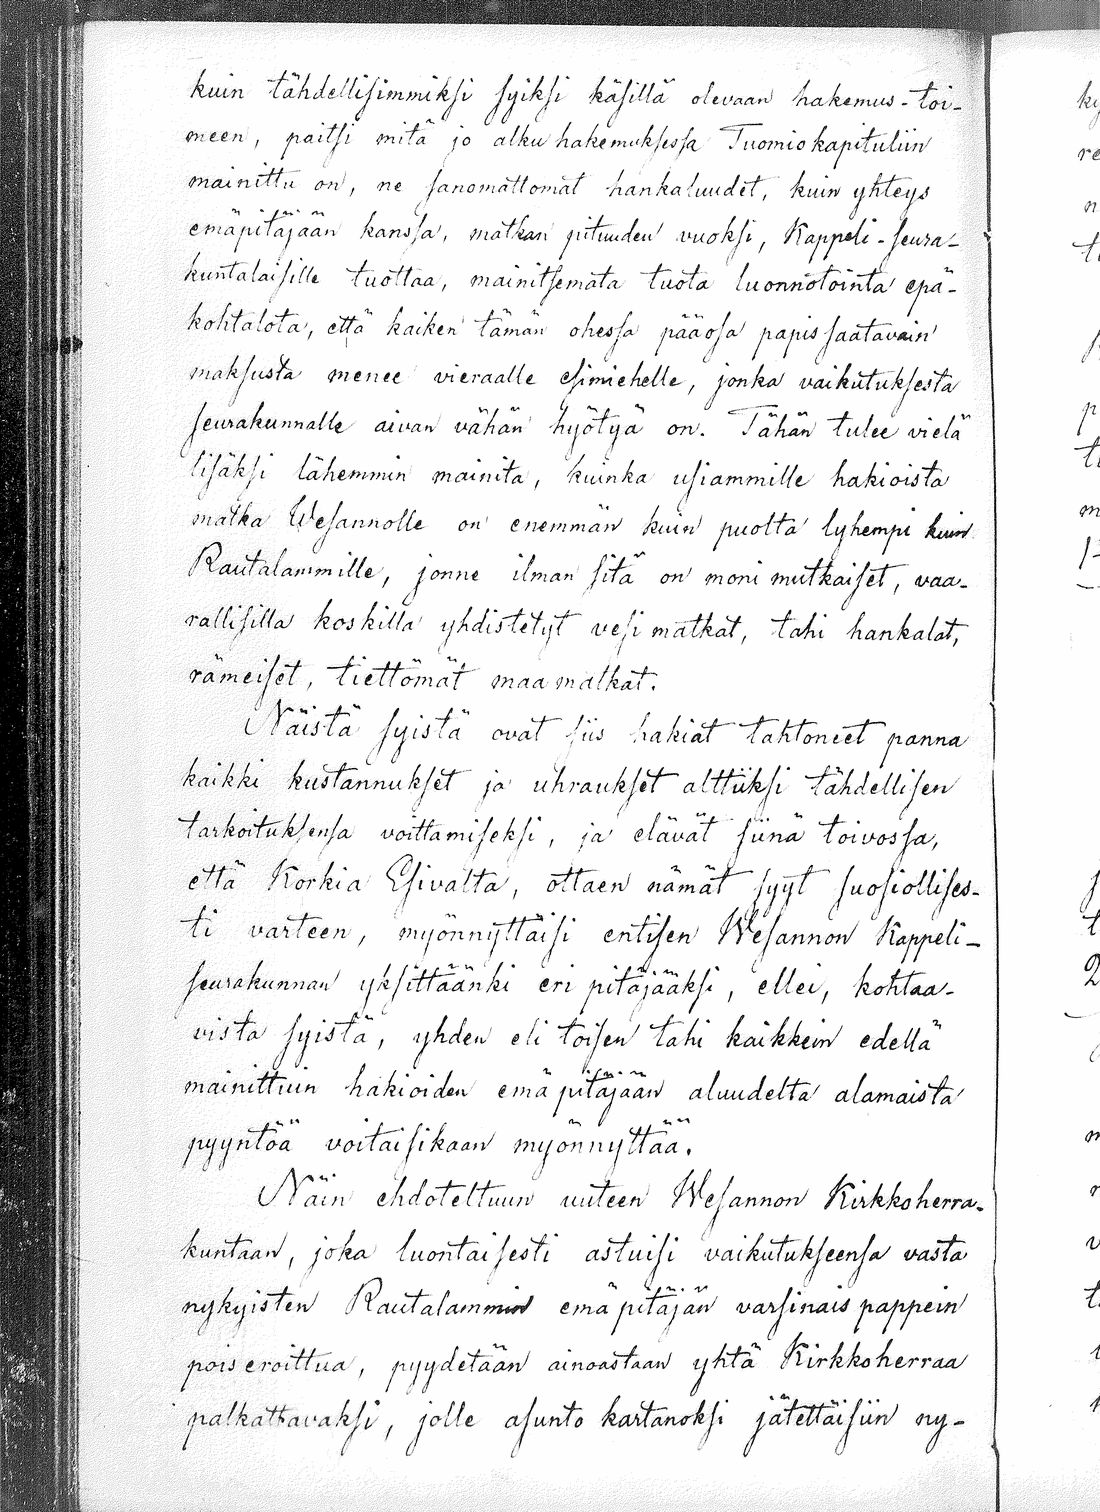 kuin tähdellisimmiksi syiksi käsillä olevaan hakemus-toi-
meen, paitsi mitä jo alku hakemuksessa Tuomiokapituliin
mainittu on, ne sanomattomat hankaluudet, kuin yhteys
emäpitäjään kanssa, matkan pituuden vuoksi, Kappeli-seura-
kuntalaisille tuottaa, mainitsemata tuota luonnotointa epä-
kohtalota, että kaiken tämän ohessa pääosa papis saatavain
maksusta menee vieraalle esimiehelle, jonka vaikutuksesta
seurakunnalle aivan vähän hyötyä on. Tähän tulee vielä
lisäksi lähemmin mainita, kuinka usiammille hakioista
matka Wesannolle on enemmän kuin puolta lyhempi kuin
Rautalammille, jonne ilman sitä on moni mutkaiset, vaa-
rallisilla koskilla yhdistetyt vesi matkat, tahi hankalat,
rämeiset, tiettömät maa matkat.
Näistä syistä ovat siis hakiat tahtoneet panna
kaikki kustannukset ja uhraukset alttiiksi tähdellisen
tarkoituksensa voittamiseksi, ja elävät siinä toivossa,
että Korkia Esivalta, ottaen nämät syyt suosiollises-
ti varteen, myönnyttäisi entisen Wesannon Kappeli-
seurakunnan yksittäänki eri pitäjääksi, ellei, kohtaa-
vista syistä, yhden eli toisen tahi kaikkein edellä
mainittuin hakioiden emä pitäjään aluudelta alamaista
pyyntöä voitaisikaan myönnyttää.
Näin ehdoteltuun uuteen Wesannon Kirkkoherra-
kuntaan, joka luontaisesti astuisi vaikutukseensa vasta
nykyisten Rautalammin emä pitäjän varsinais pappein
pois eroittua, pyydetään ainoastaan yhtä Kirkkoherraa
palkattavaksi, jolle asunto kartanoksi jätettäisiin ny-